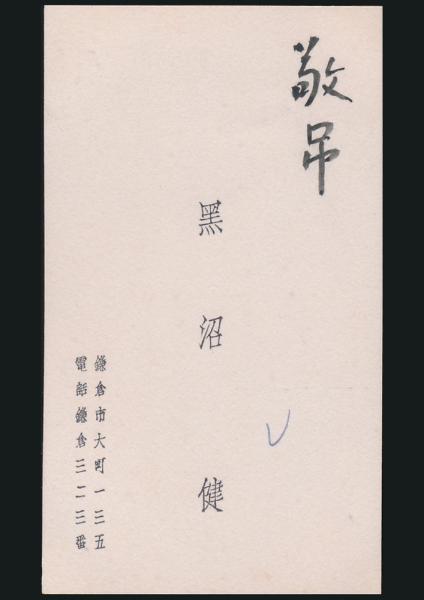 敬吊
黑沼健
鎌倉市大町一三五
電話鎌倉三二三番